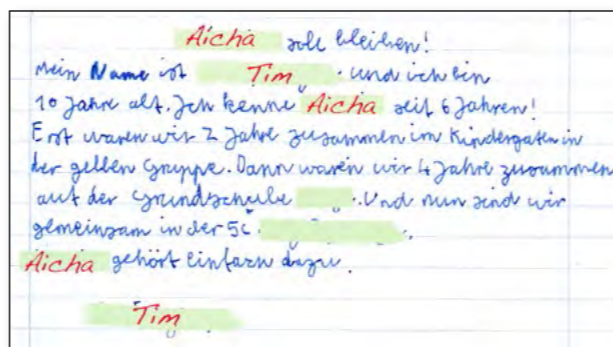 Aicha soll bleiben!
Mein Name ist Tim. und ich bin
10 Jahre alt. Ich kenne Aicha seit 6 Jahren!
Erst waren wir 2 Jahre zusammen im Kindergaten in
der gelben Gruppe. Dann waren wir 4 Jahre zusammen
auf der Grundschule . Und nun sind wir
gemeinsam in der 5c .
Aicha gehört einfach dazu.
Tim